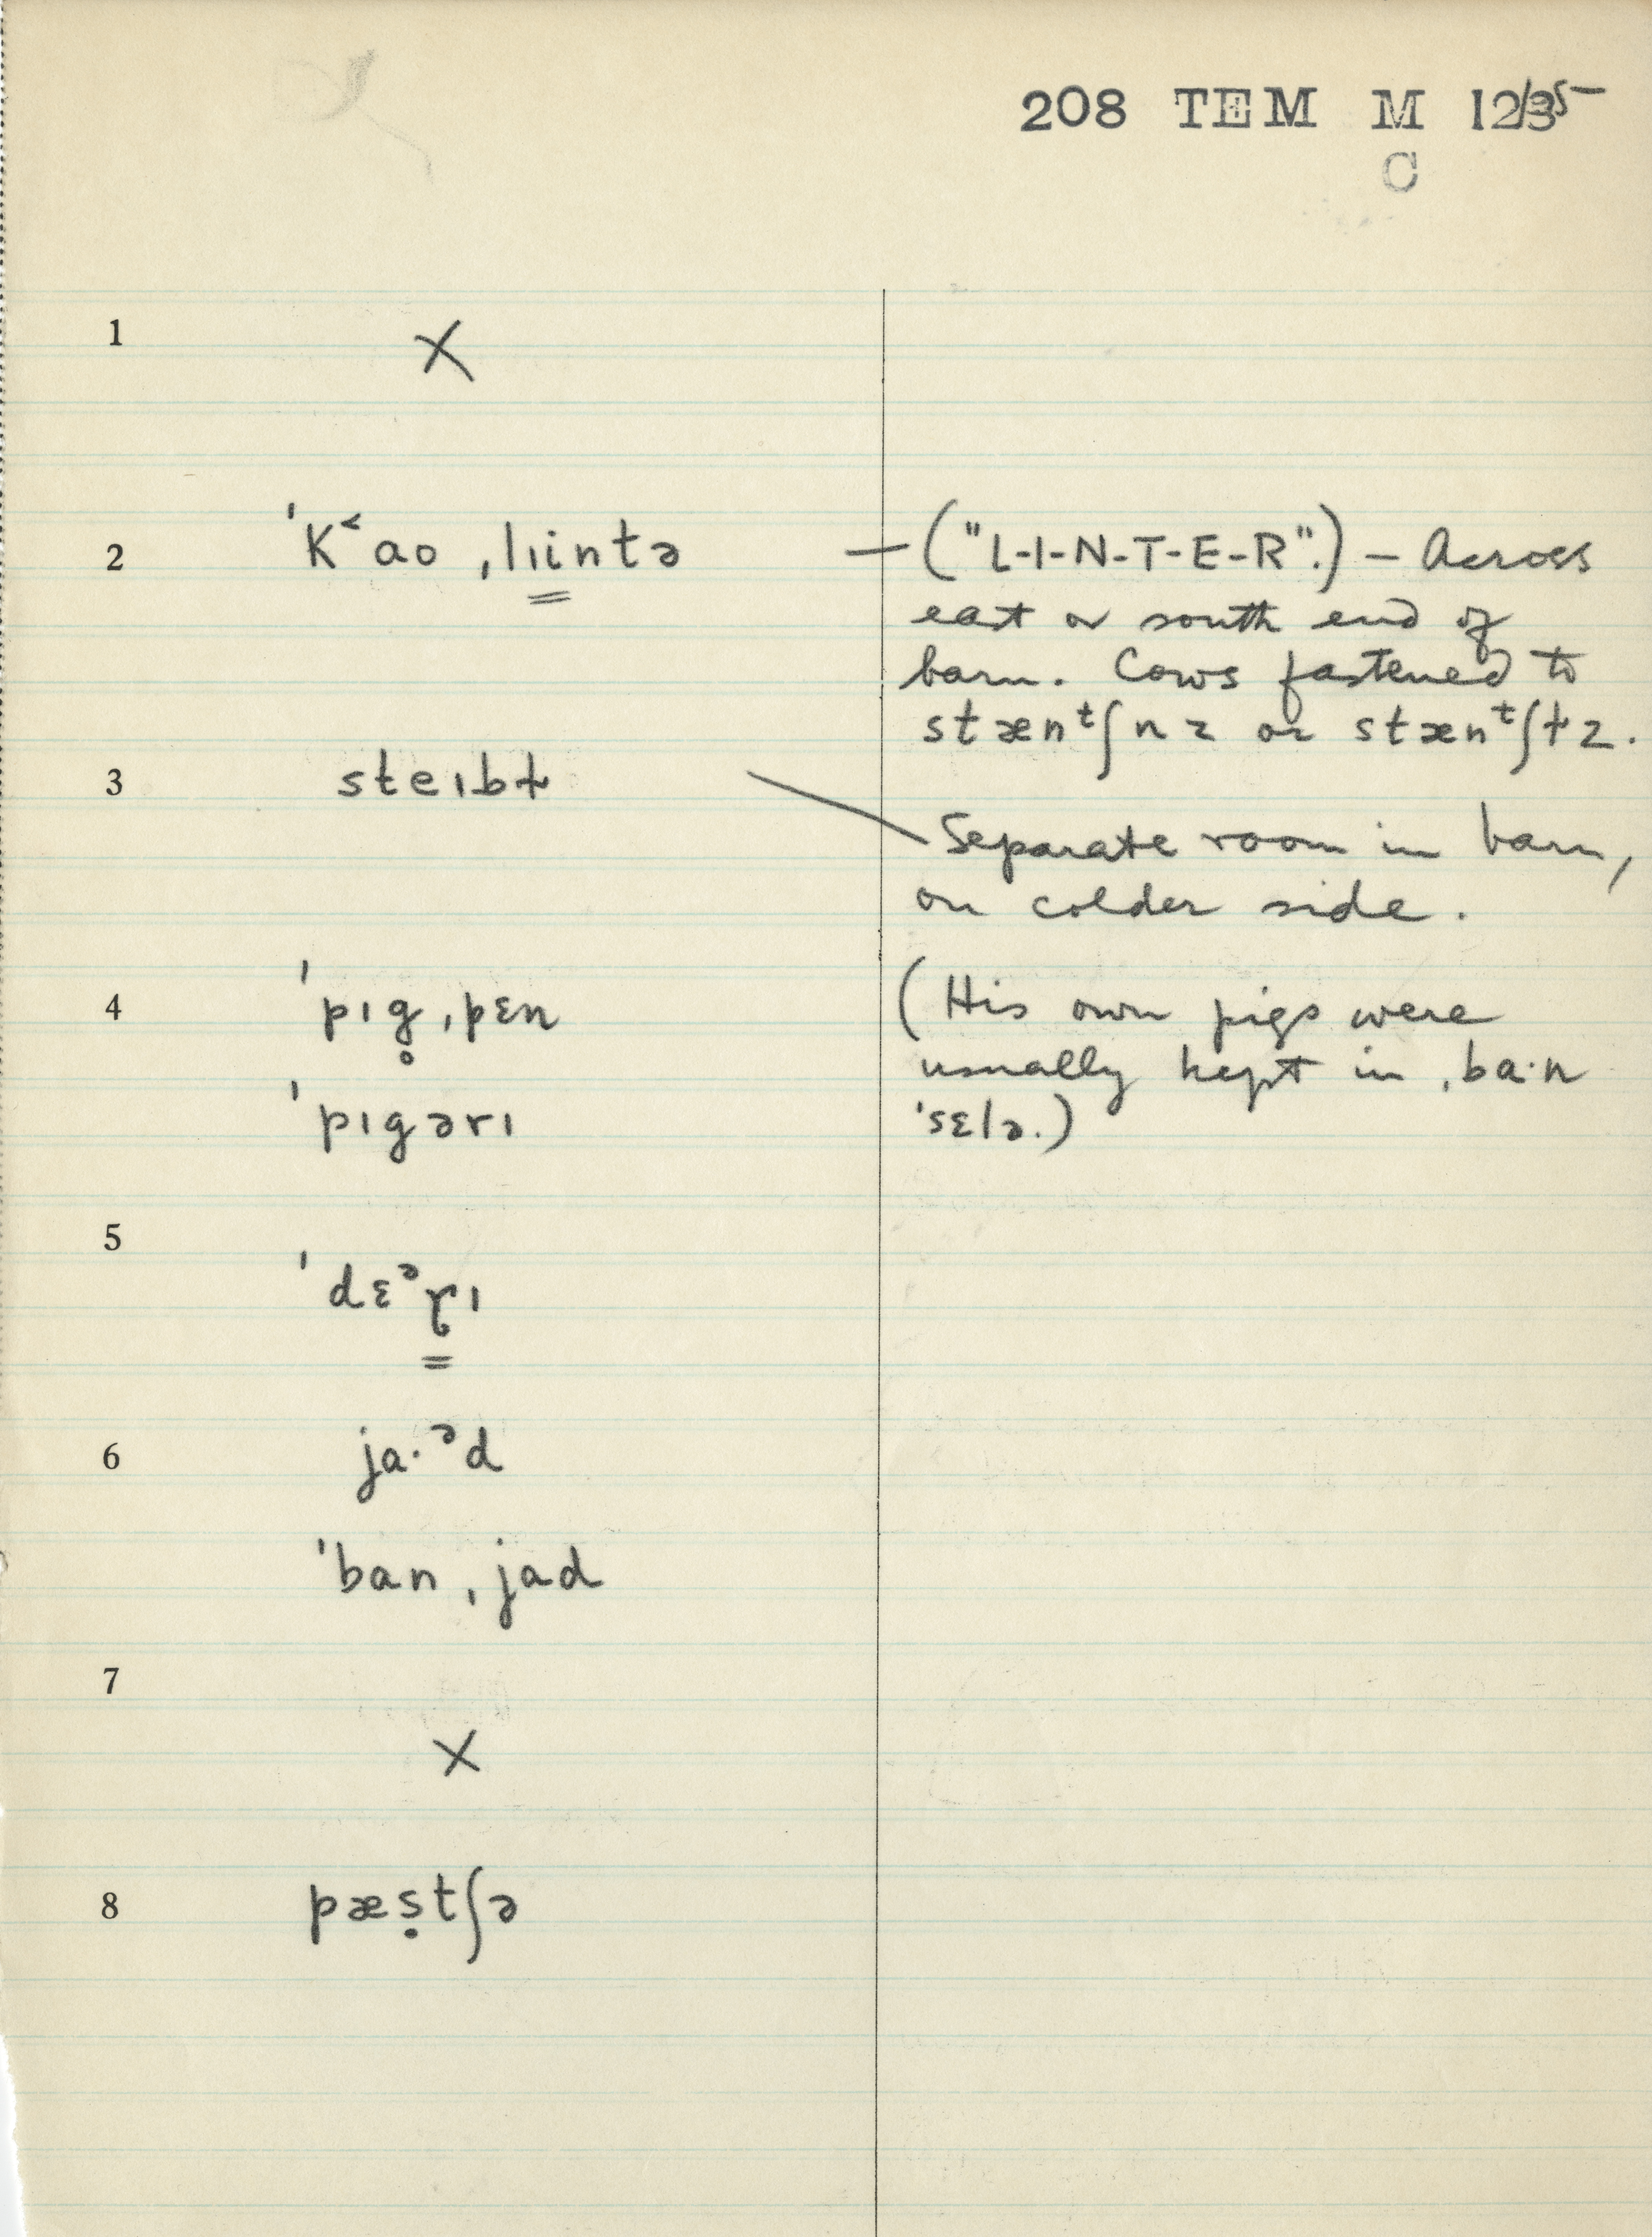 208 TEM M 12/35
C
1 X
2 ˈKʻao ˌlɪintə — ("L-I-N-T-E-R".) — Across
east or south end of
barn. Cows fastened to
stænᵗʃnz or stænᵗʃɫz.
3 steɪbɫ
Separate room in barn,
on colder side.
4 ˈpɪg̥ ˌpɛn (His own pigs were
usually kept in ˌba·n
ˈpɪgərɪ ˈsɛlə.)
5 ˈdɛᵊɽɪ
6 ja·ᵊd
ˈban ˌjad
7 X
8 pæṣtʃə